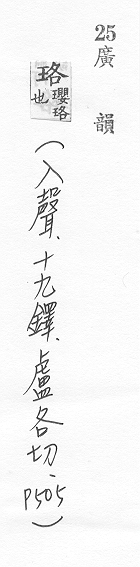 25廣韻
珞瓔珞也(入聲、十九鐸、盧各切、P505)